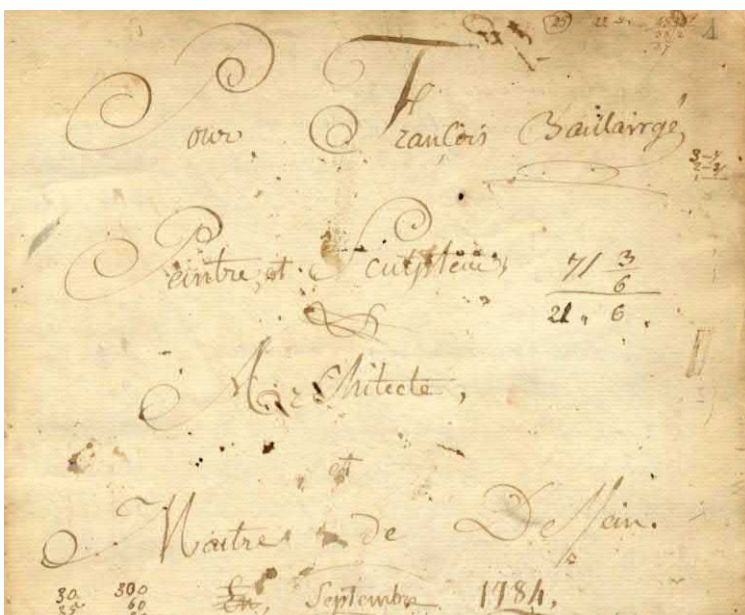 Pour François Baillairgé,
Peintre, et Sculpteur,
71 3/6
21 " 6 .
Architecte,
et
Maitre de Dessein.
En, Septembre 1784,
30 300
35 60